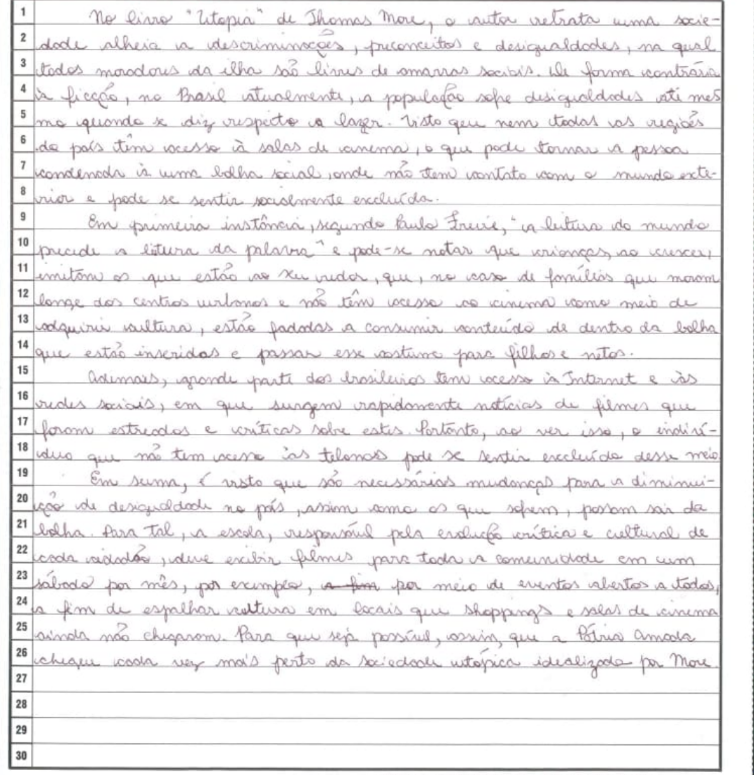 1 No livro "Utopia" de Thomas More, o autor retrata uma socie-
2 dade alheia a descriminações, preconceitos e desigualdades, na qual
3 todos moradores da ilha são livres de amarras sociais. De forma contrária
4 à ficção, no Brasil atualmente, a população sofre desigualdades até mes
5 mo quando se diz respeito a lazer. Visto qeu nem todas as regiões
6 do país têm acesso à salas de cinema, o que pode tornar a pessoa
7 condenada à uma bolha social, onde não tem contato com o mundo exte-
8 rior e pode se sentir socialmente excluída.
9 Em primeira instância, segundo Paulo Freire, "a leitura do mundo
10 precede a leitura da palavra" e pode-se notar que crianças, ao crescer,
11 imitam os que estão ao seu redor, que, no caso de famílias que moram
12 longe dos centros urbanos e não têm acesso ao cinema como meio de
13 adquirir cultura, estão fadadas a consumir conteúdo de dentro da bolha
14 que estão inseridas e passar esse costume para filhos e netos.
15 Ademais, grande parte dos brasileiros tem acesso à Internet e às
16 redes sociais, em que surgem rapidamente notícias de filmes que
17 foram estreados e críticas sobre estes. Portanto, ao ver isso, o indiví-
18 duo que não tem acesso às telonas pode se sentir excluído desse meio
19 Em suma, é visto que são necessárias mudanças para a diminui-
20 ição de desigualdade no país, assim como os que sofrem, possam sair da
21 bolha. Para Tal, a escola, responsável pela evolução crítica e cultural de
22 cada cidadão, deve exibir filmes para toda a comunidade em um
23 sábado por mês, por exemplo, a fim por meio de eventos abertos a todos,
24 a fim de espalhar cultura em locais que shoppings e salas de cinema
25 ainda não chegaram. Para que seja possível, assim, que a Pátria Amada
26 chegue cada vez mais perto da sociedade utópica idealizada por More.
27
28
29
30